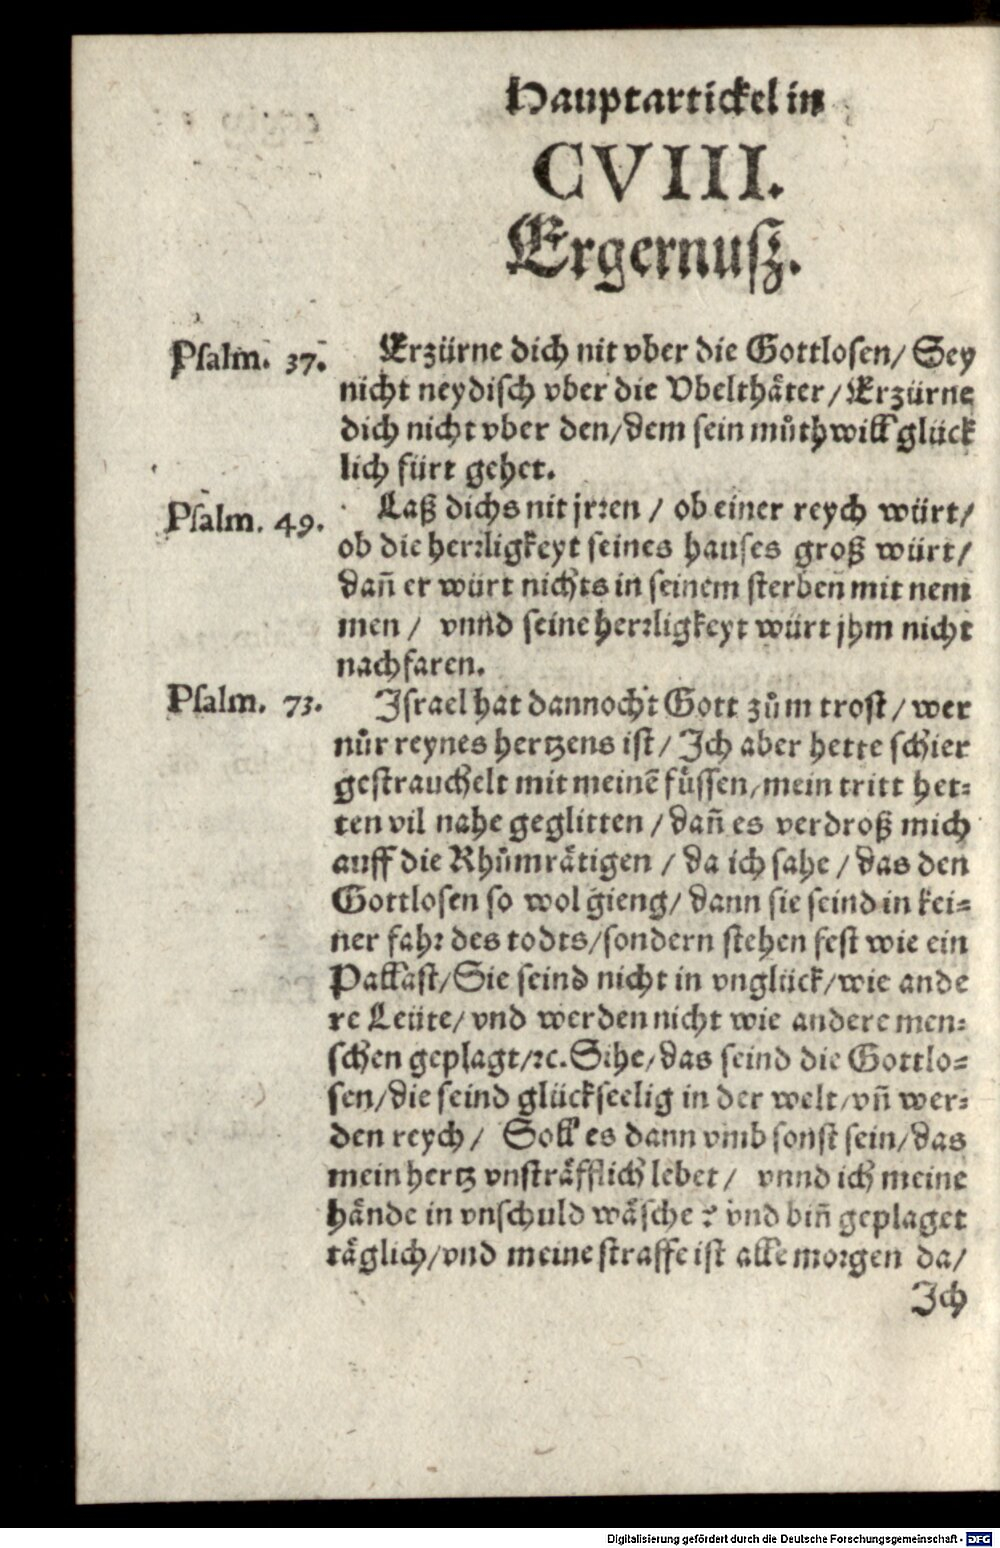 Hauptartickel in
CVIII.
Ergernusz.
Psalm. 37. Erzürne dich nit vber die Gottlosen/ Sey
nicht neydisch vber die Vbelthäter/ Erzürne
dich nicht vber den/ dem sein můthwill glück
lich fürt gehet.
Psalm. 49. Laß dichs nit jrren / ob einer reych würt/
ob die herrligkeyt seines hauses groß würt/
dañ er würt nichts in seinem sterben mit nem
men / vnnd seine herrligkeyt würt jhm nicht
nachfaren.
Psalm. 73. Israel hat dannocht Gott zům trost/ wer
nůr reynes hertzens ist/ Ich aber hette schier
gestrauchelt mit meinē fůssen/ mein tritt het-
ten vil nahe geglitten / dañ es verdroß mich
auff die Rhůmrätigen / da ich sahe / das den
Gottlosen so wol gieng/ dann sie seind in kei-
ner fahr des todts/ sondern stehen fest wie ein
Pallast/ Sie seind nicht in vnglück/ wie ande
re Leüte/ vnd werden nicht wie andere men-
schen geplagt/ ꝛc. Sihe/ das seind die Gottlo-
sen/ die seind glückseelig in der welt/ vñ wer-
den reych/ Soll es dann vmb sonst sein/ das
mein hertz vnsträfflich lebet/ vnnd ich meine
hände in vnschuld wäsche? vnd biñ geplaget
täglich/ vnd meine straffe ist alle morgen da/
Ich
Digitalisierung gefördert durch die Deutsche Forschungsgemeinschaft - DFG